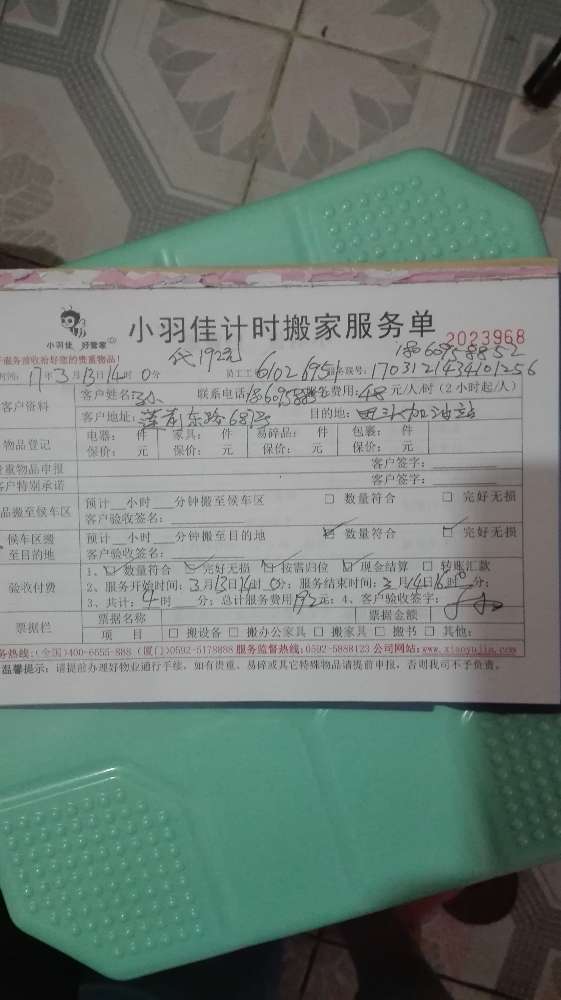 小羽佳计时搬家服务单
小羽佳 好管家
2023968
服务前收拾好您的贵重物品!
代192元
18060958852
时间: 17年3月13日14时0分 员工工 6102 6951 服务联号: 1703121434101256
客户资料 客户姓名: 孙 联系电话 服务费用: 48元/人/时 (2小时起/人)
客户地址: 莲前东路687号 目的地: 加油站
物品登记 电器: 件 家具: 件 易碎品: 件 包裹: 件
保价: 元 保价: 元 保价: 元 保价: 元
贵重物品申报 客户签字:
客户特别承诺 客户签字:
物品搬至候车区 预计__小时__分钟搬至候车区 □ 数量符合 □ 完好无损
客户验收签名:
候车区搬至目的地 预计__小时__分钟搬至目的地 ☑ 数量符合 ☑ 完好无损
客户验收签名:
验收付费 1、☑ 数量符合 ☑ 完好无损 ☑ 按需归位 ☑ 现金结算 □ 转账汇款
2、服务开始时间: 3月13日14时0分; 服务结束时间: 3月14日16时0分;
3、共计: 4时__分; 总计服务费用192元; 4、客户验收签字:
票据栏 票据名称 票据金额
项 目 □ 搬设备 □ 搬办公家具 □ 搬家具 □ 搬书 □ 其他:
务热线:(全国)400-6655-888 (厦门)0592-5178888 服务监督热线:0592-5888123 公司网站:www.xiaoyujia.com
温馨提示: 请提前办理好物业通行手续, 如有贵重、易碎或其它特殊物品请提前申报, 否则我司不予负责。